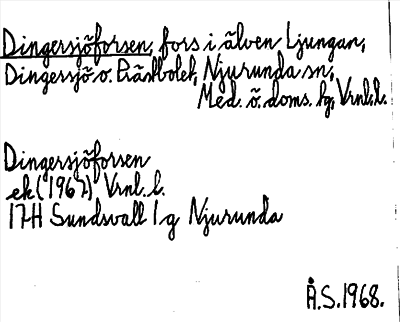 Dingersjöforsen, fors i älven Ljungan,
Dingersjö o. Prästbolet, Njurunda sn,
Med. ö. doms. hg, Vrnl. l.
Dingersjöforsen
ek (1967) Vrnl. l.
17H Sundsvall 1g Njurunda
Å.S. 1968.